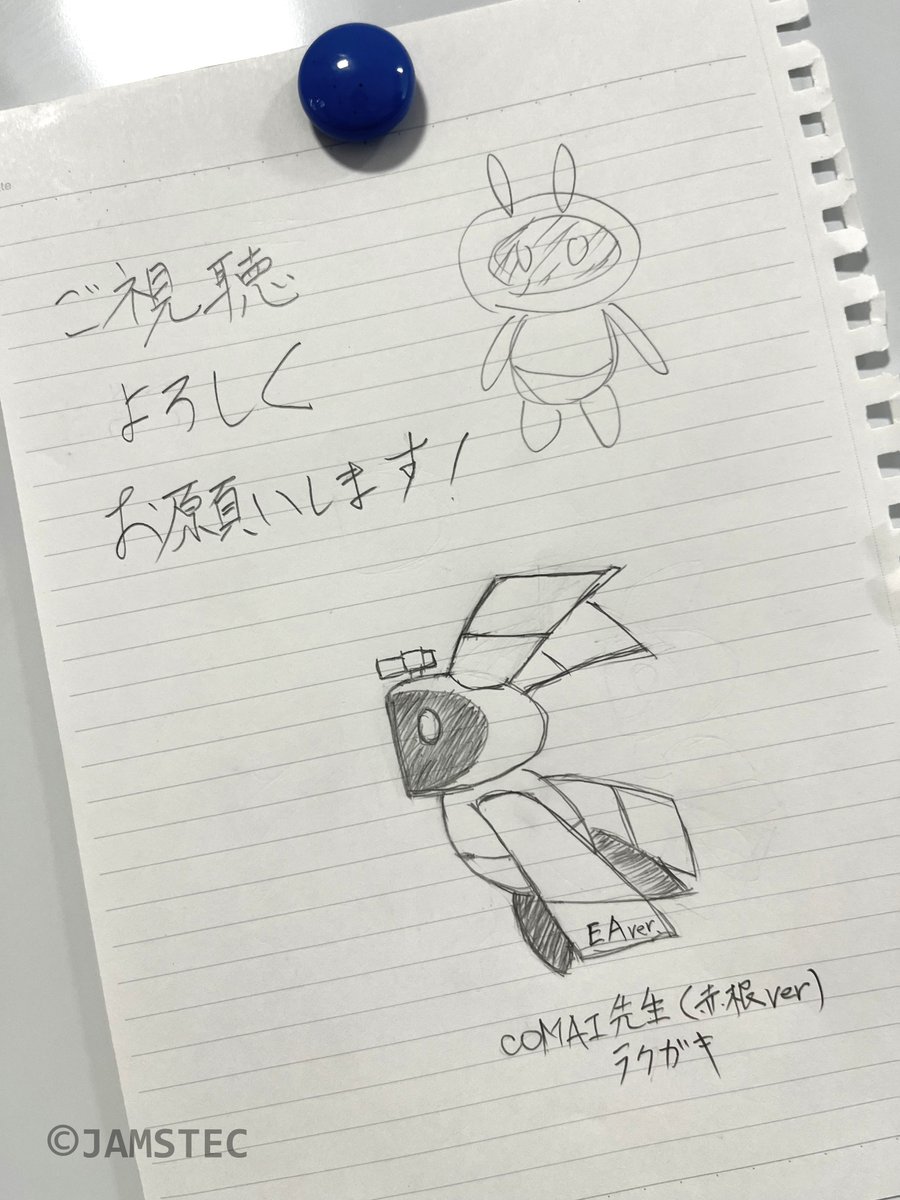 ご視聴
よろしく
お願いします!
EA ver.
COMAI先生(赤根ver)
ラクガキ
©JAMSTEC